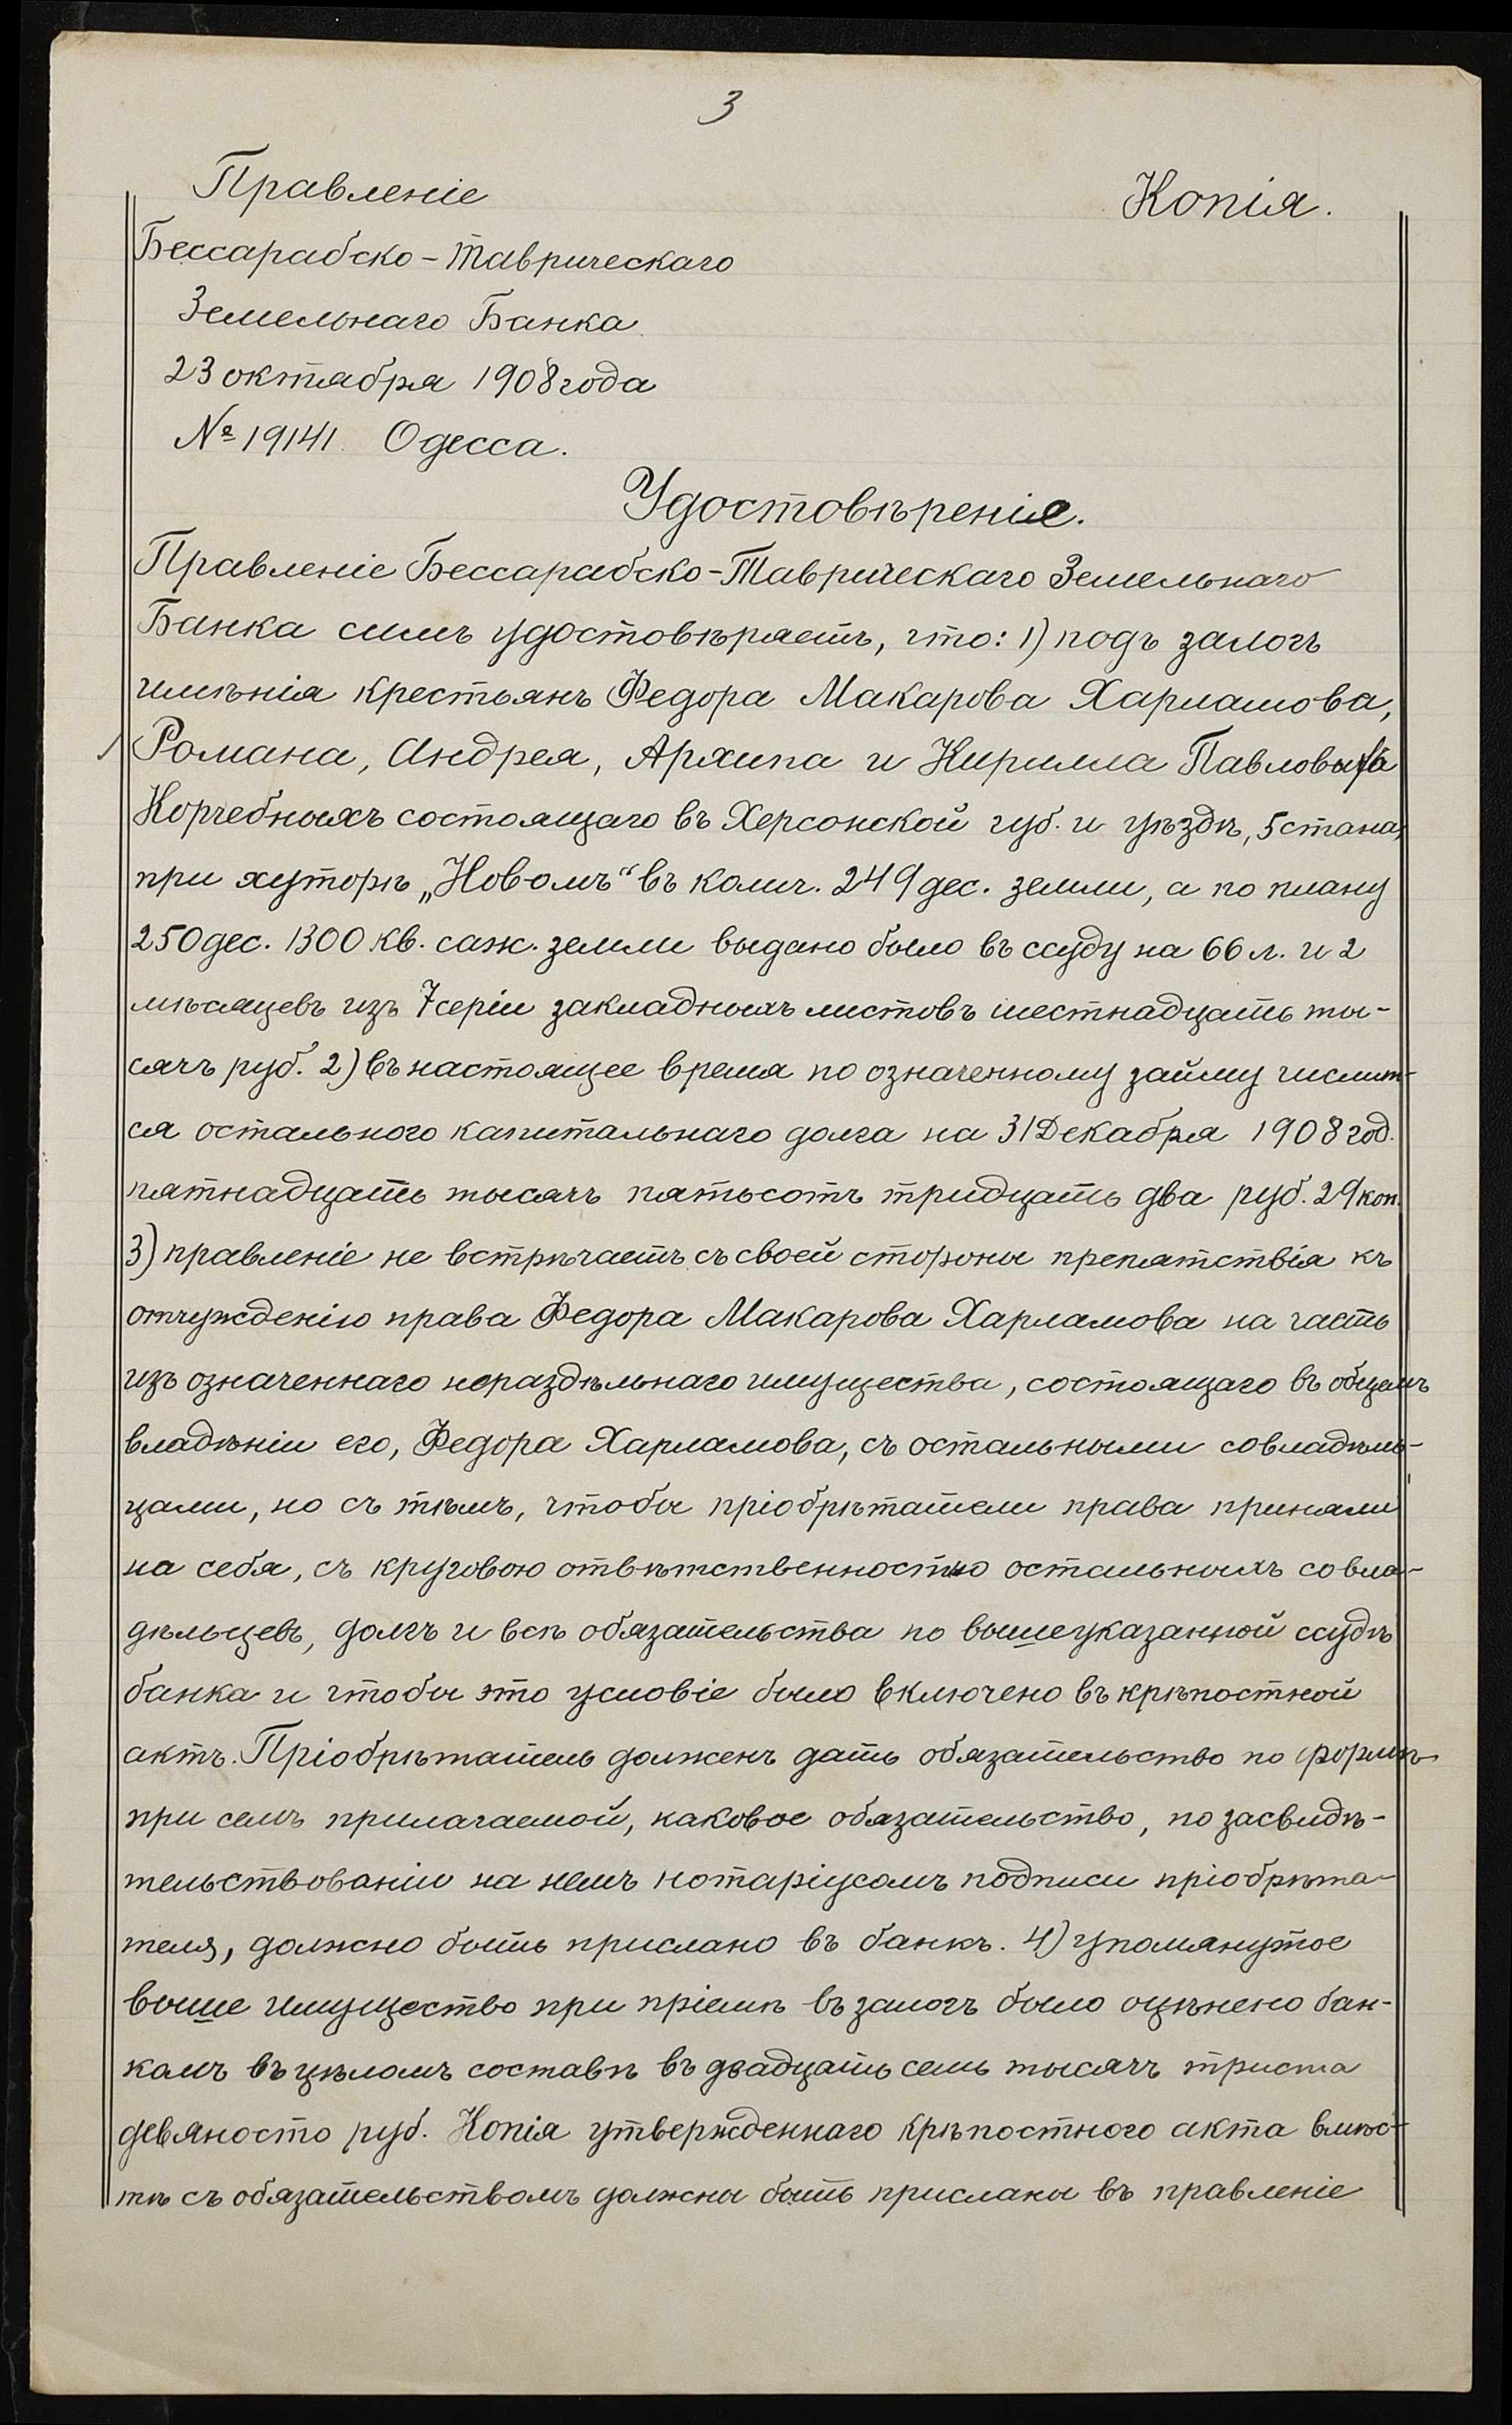 3
Правленіе
Копія.
Бессарабско-Таврическаго
Земельнаго Банка
23 октября 1908 года
№ 19141. Одесса.
Удостовѣреніе.
Правленіе Бессарабско-Таврическаго Земельнаго
Банка симъ удостовѣряетъ, что: 1) подъ залогъ
имѣнія крестьянъ Федора Макарова Харламова,
Романа, Андрея, Архипа и Кирилла Павловыхъ
Корчебныхъ состоящаго въ Херсонской губ. и уѣздѣ, 5 стана,
при хуторѣ „Новомъ“ въ колич. 249 дес. земли, а по плану
250 дес. 1300 кв. саж. земли выдано было въ ссуду на 66 л. и 2
мѣсяцевъ изъ 7 серіи закладныхъ листовъ шестнадцать ты-
сячъ руб. 2) въ настоящее время по означенному займу числит-
ся остального капитальнаго долга на 31 Декабря 1908 год.
пятнадцать тысячъ пятьсотъ тридцать два руб. 29 коп.
3) правленіе не встрѣчаетъ съ своей стороны препятствія къ
отчужденію права Федора Макарова Харламова на часть
изъ означеннаго нераздѣльнаго имущества, состоящаго въ общемъ
владѣніи его, Федора Харламова, съ остальными совладѣль-
цами, но съ тѣмъ, чтобы пріобрѣтатели права приняли
на себя, съ круговою отвѣтственностью остальныхъ совла-
дѣльцевъ, долгъ и всѣ обязательства по вышеуказанной ссудѣ
банка и чтобы это условіе было включено въ крѣпостной
актъ. Пріобрѣтатель долженъ дать обязательство по формѣ
при семъ прилагаемой, каковое обязательство, по засвидѣ-
тельствованіи на немъ нотаріусомъ подписи пріобрѣта-
теля, должно быть прислано въ банкъ. 4) упомянутое
выше имущество при пріемѣ въ залогъ было оцѣнено бан-
комъ въ цѣломъ составѣ въ двадцать семь тысячъ триста
девяносто руб. Копія утвержденнаго крѣпостного акта вмѣс-
тѣ съ обязательствомъ должны быть присланы въ правленіе